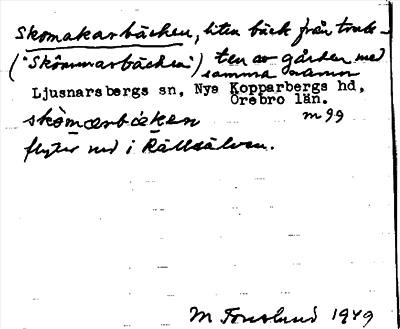 Skomakarbäcken, liten bäck från trak-
("Skömmarbäcken") ten av gården med
samma namn
Ljusnarsbergs sn, Nya Kopparbergs hd,
Örebro län.
skömarbäken m99
flyter ned i Rällsälven.
M Fonslund 1949